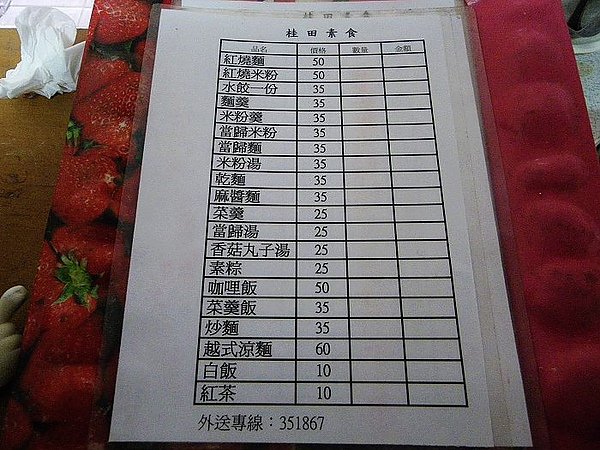 桂田素食
桂田素食
品名 價格 數量 金額
紅燒麵 50
紅燒米粉 50
水餃一份 35
麵羹 35
米粉羹 35
當歸米粉 35
當歸麵 35
米粉湯 35
乾麵 35
麻醬麵 35
菜羹 25
當歸湯 25
香菇丸子湯 25
素粽 25
咖哩飯 50
菜羹飯 35
炒麵 35
越式涼麵 60
白飯 10
紅茶 10
外送專線：351867